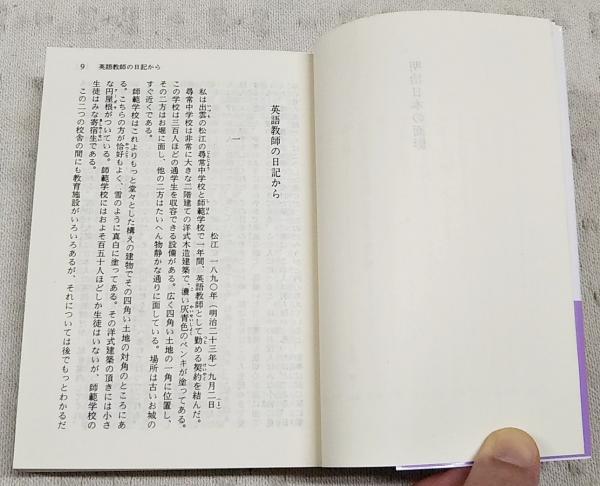 9　英語教師の日記から
英語教師の日記から
一
松江　一八九〇年(明治二十三年)九月二日
私は出雲の松江の尋常中学校と師範学校で一年間、英語教師として勤める契約を結んだ。
尋常中学校は非常に大きな二階建ての洋式木造建築で、濃い灰青色のペンキが塗ってある。
この学校は三百人ほどの通学生を収容できる設備がある。広く四角い土地の一角に位置し、
その二方はお堀に面し、他の二方はたいへん物静かな通りに面している。場所は古いお城の
すぐ近くである。
師範学校はこれよりもっと堂々とした構えの建物でその四角い土地の対角のところにあ
る。こちらの方が恰好もよく、雪のように真白に塗ってある。その洋式建築の頂きには小さ
な円屋根がついている。師範学校にはおよそ百五十人ほどしか生徒はいないが、師範学校の
生徒はみな寄宿生である。
この二つの校舎の間にも教育施設がいろいろあるが、それについては後でもっとわかるだ